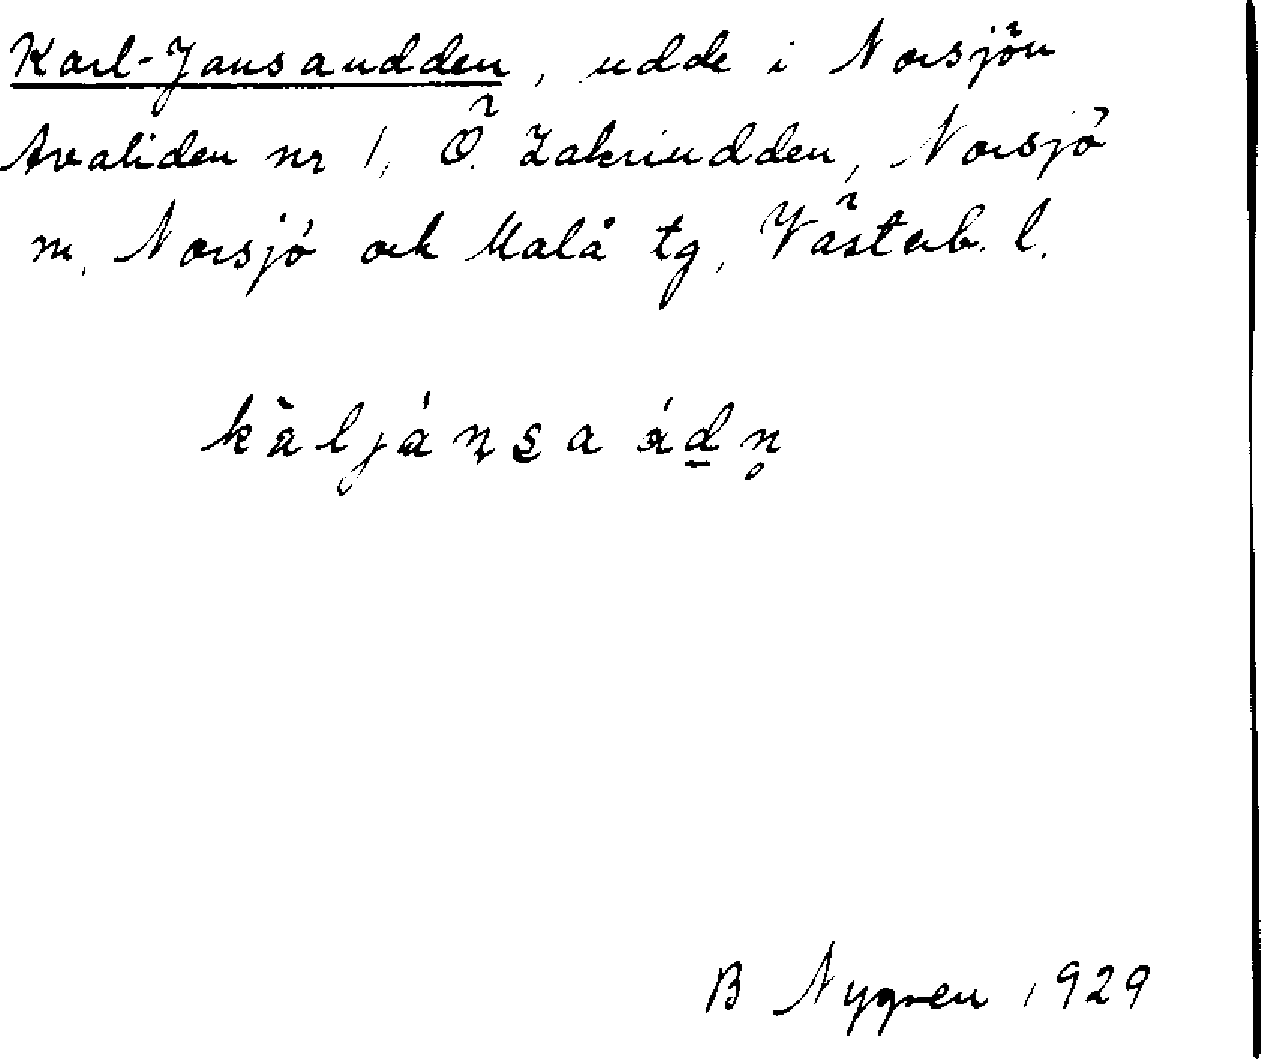 Karl-Jansaudden, udde i Norsjön
Avaliden nr 1, Ö. Zakriudden, Norsjö
m, Norsjö och Malå tg, Västerb. l.
kàljánsa ádn̥
B Nygren 1929